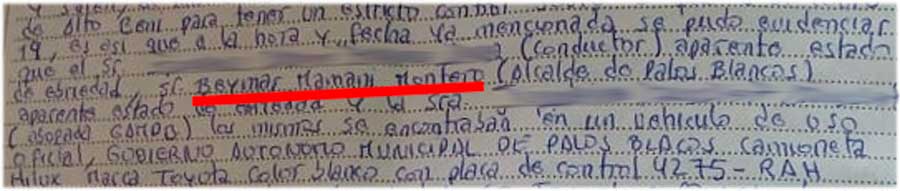 de Alto Beni para tener un estricto control
19, es asi que a la hora y fecha ya mencionada se pudo evidenciar
que el sr. (conductor) aparente estado
de ebriedad, sr. Beymar Mamani Montero (Alcalde de Palos Blancos)
aparente estado de ebriedad y la sra.
(abogada GAMPB) los mismos se encontraban en un vehiculo de uso
oficial, GOBIERNO AUTONOMO MUNICIPAL DE PALOS BLACOS camioneta
Hilux Marca Toyota color blanco con placa de control 4275-RAH